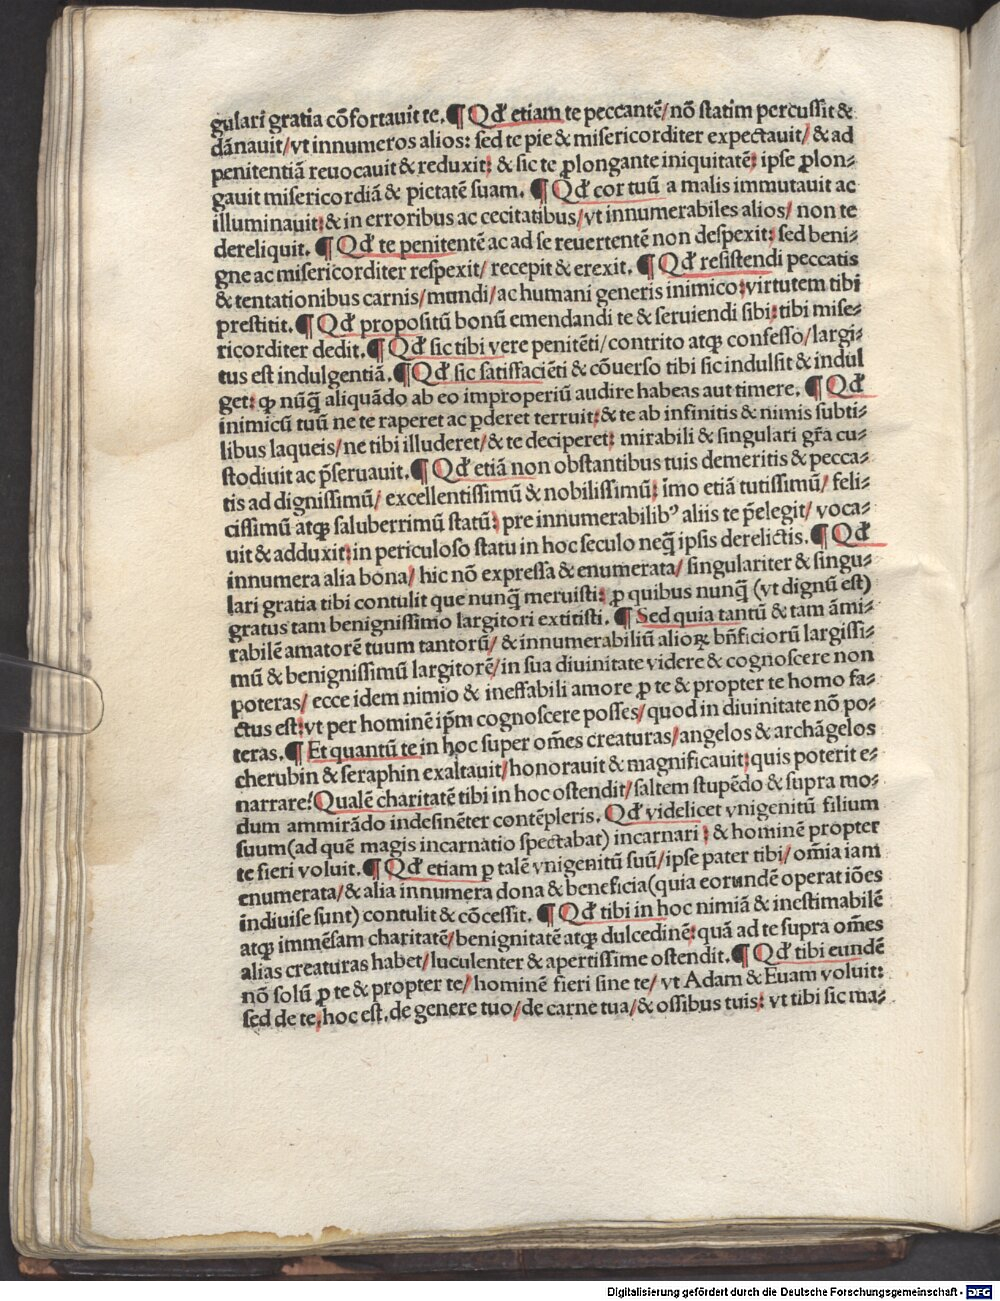 gulari gratia cōfortauit te. ¶ Qđ etiam te peccantē/ nō statim percussit &
dānauit/ vt innumeros alios: sed te pie & misericorditer expectauit/ & ad
penitentiā reuocauit & reduxit: & sic te ꝓlongante iniquitatē: ipse ꝓlon⸗
gauit misericordiā & pietatē suam. ¶ Qđ cor tuū a malis immutauit ac
illuminauit: & in erroribus ac cecitatibus/ vt innumerabiles alios/ non te
dereliquit. ¶ Qđ te penitentē ac ad se reuertentē non despexit: sed beni⸗
gne ac misericorditer respexit/ recepit & erexit. ¶ Qđ resistendi peccatis
& tentationibus carnis/ mundi/ ac humani generis inimico: virtutem tibi
prestitit. ¶ Qđ propositū bonū emendandi te & seruiendi sibi: tibi mise⸗
ricorditer dedit. ¶ Qđ sic tibi vere penitēti/ contrito atqꝫ confesso/ largi⸗
tus est indulgentiā. ¶ Qđ sic satisfaciēti & cōuerso tibi sic indulsit & indul
get: ꝙ nūq̄ aliquādo ab eo improperiū audire habeas aut timere. ¶ Qđ
inimicū tuū ne te raperet ac ꝑderet terruit: & te ab infinitis & nimis subti⸗
libus laqueis/ ne tibi illuderet/ & te deciperet: mirabili & singulari gr̄a cu⸗
stodiuit ac p̄seruauit. ¶ Qđ etiā non obstantibus tuis demeritis & pecca⸗
tis ad dignissimū/ excellentissimū & nobilissimū: īmo etiā tutissimū/ feli⸗
cissimū atqꝫ saluberrimū statū: pre innumerabilibꝰ aliis te p̄elegit/ voca⸗
uit & adduxit: in periculoso statu in hoc seculo neq̄ ipsis derelictis. ¶ Qđ
innumera alia bona/ hic nō expressa & enumerata/ singulariter & singu⸗
lari gratia tibi contulit que nunq̄ meruisti: ꝓ quibus nunq̄ (vt dignū est)
gratus tam benignissimo largitori extitisti. ¶ Sed quia tantū & tam āmi⸗
rabilē amatorē tuum tantorū/ & innumerabiliū alioꝝ bn̄ficiorū largissi⸗
mū & benignissimū largitorē/ in sua diuinitate videre & cognoscere non
poteras/ ecce idem nimio & ineffabili amore ꝓ te & propter te homo fa⸗
ctus est: vt per hominē ip̄m cognoscere posses/ quod in diuinitate nō po⸗
teras. ¶ Et quantū te in hoc super om̄es creaturas/ angelos & archāgelos
cherubin & seraphin exaltauit/ honorauit & magnificauit: quis poterit e⸗
narrare? Qualē charitatē tibi in hoc ostendit/ saltem stupēdo & supra mo⸗
dum ammirādo indesinēter contēpleris. Qđ videlicet vnigenitū filium
suum (ad quē magis incarnatio spectabat) incarnari: & hominē propter
te fieri voluit. ¶ Qđ etiam ꝑ talē vnigenitū suū/ ipse pater tibi/ om̄ia iam
enumerata/ & alia innumera dona & beneficia (quia eorundē operatiōes
indiuise sunt) contulit & cōcessit. ¶ Qđ tibi in hoc nimiā & inestimabilē
atqꝫ immēsam charitatē/ benignitatē atqꝫ dulcedinē: quā ad te supra om̄es
alias creaturas habet/ luculenter & apertissime ostendit. ¶ Qđ tibi eundē
nō solū ꝓ te & propter te/ hominē fieri sine te/ vt Adam & Euam voluit:
sed de te, hoc est, de genere tuo/ de carne tua/ & ossibus tuis: vt tibi sic ma⸗
Digitalisierung gefördert durch die Deutsche Forschungsgemeinschaft - DFG